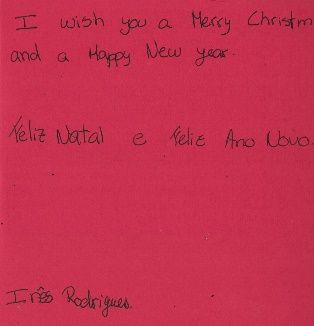 I wish you a Merry Christm
and a Happy New year.
Feliz Natal e Feliz Ano Novo.
Inês Rodrigues.